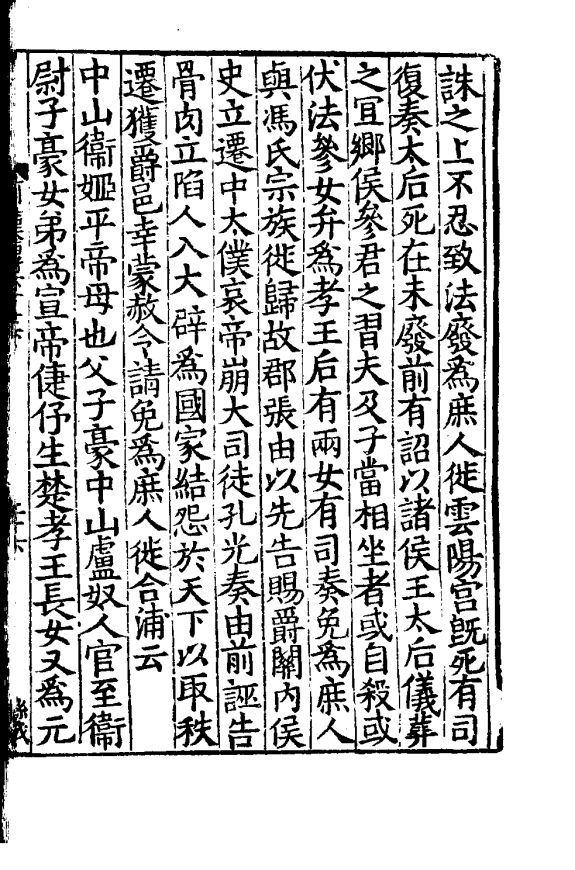 誅之上不忍致法廢爲庶人徙雲陽宮旣死有司
復奏太后死在未廢前有詔以諸侯王太后儀葬
之冝鄉侯參君之習夫及子當相坐者或自殺或
伏法參女弁爲孝王后有兩女有司奏免爲庶人
與馮氏宗族徙歸故郡張由以先告賜爵關内侯
史立遷中太僕哀帝崩大司徒孔光奏由前誣告
骨肉立陷人入大辟爲國家結怨於天下以取秩
遷獲爵邑幸蒙赦令請免爲庶人徙合浦云
中山衞姬平帝母也父子豪中山盧奴人官至衞
尉子豪女弟爲宣帝倢伃生楚孝王長女又爲元